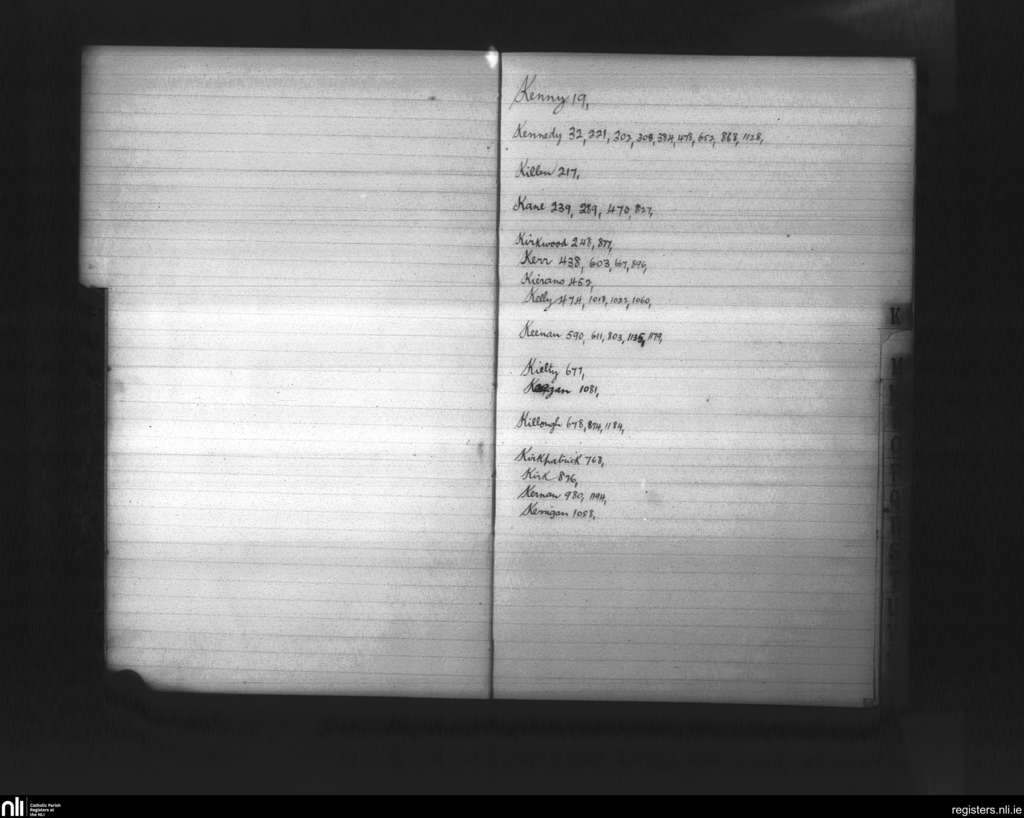 Kenny 19,
Kennedy 32, 221, 302, 308, 384, 478, 652, 868, 1128,
Killen 217,
Kane 239, 289, 470, 827,
Kirkwood 248, 877,
Kerr 438, 603, 667, 896,
Kierans 452,
Kelly 474, 1018, 1022, 1060,
K
Keenan 590, 611, 803, 1135, 1179,
Kielty 677,
Keegan 1081,
Killough 678, 874, 1184,
Kirkpatrick 768,
Kirk 876,
Kernan 980, 1194,
Kerrigan 1058,
nli
Catholic Parish
Registers at
the NLI
registers.nli.ie